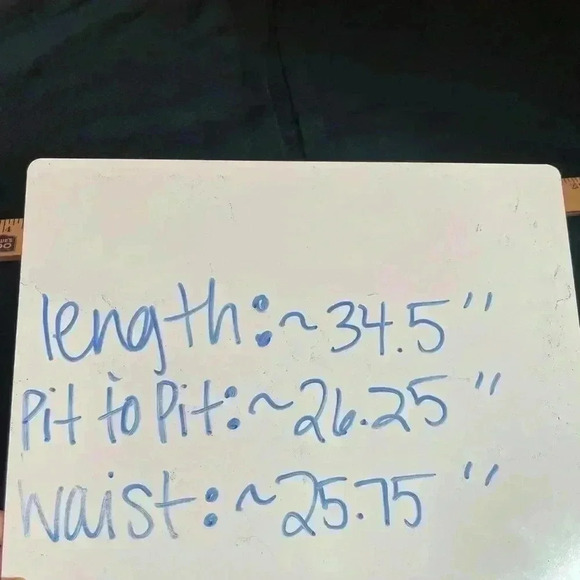 length: ~34.5"
Pit to Pit: ~26.25"
waist: ~25.75"